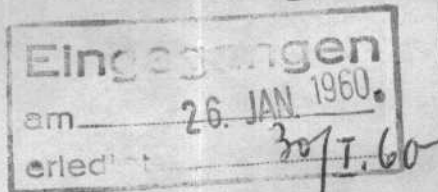 Eingegangen
am 26. JAN. 1960.
erledigt 30/I.60